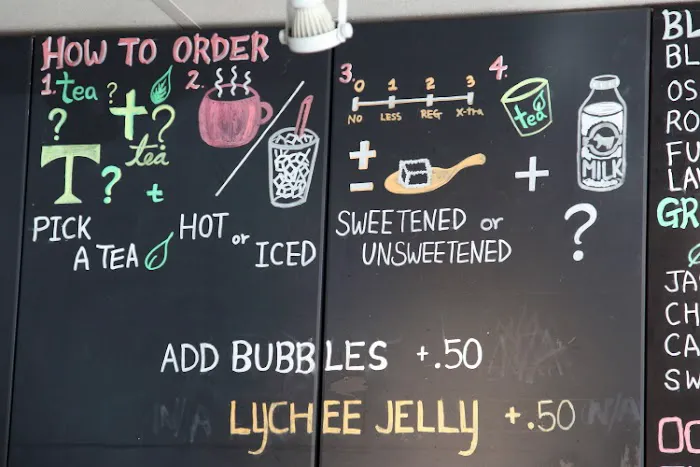 HOW TO ORDER
1. tea ? t ?
? tea
T ? t
PICK
A TEA
2.
HOT or ICED
3.
0 1 2 3
NO LESS REG X-tra
+
-
SWEETENED or
UNSWEETENED
4.
tea
+
MILK
?
ADD BUBBLES +.50
N/A LYCHEE JELLY +.50 N/A
BL
BL
OS
RO
FU
LAV
GR
JA
CH
CA
SW